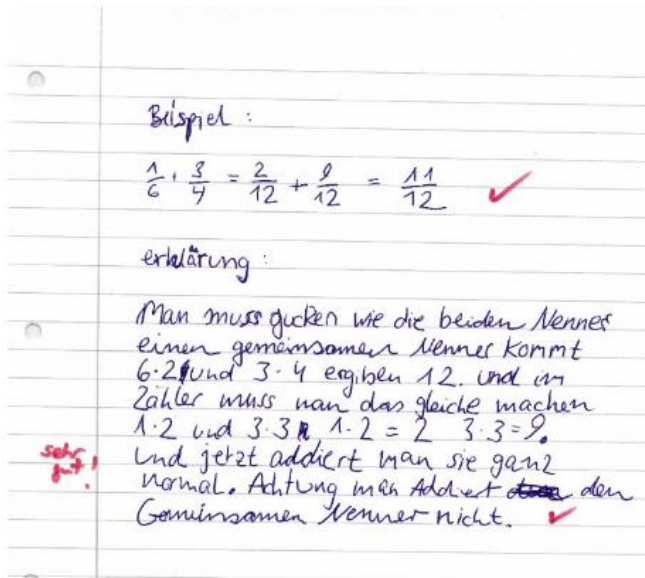 Beispiel :
1/6 + 3/4 = 2/12 + 9/12 = 11/12 ✓
erklärung :
Man muss gucken wie die beiden Nenner
einen gemeinsamen Nenner kommt
6·2 und 3·4 ergiben 12. und im
Zähler muss man das gleiche machen
1·2 und 3·3 1·2 = 2 3·3 = 9.
sehr gut! und jetzt addiert man sie ganz
normal. Achtung man Addiert den
Gemeinsamen Nenner nicht. ✓